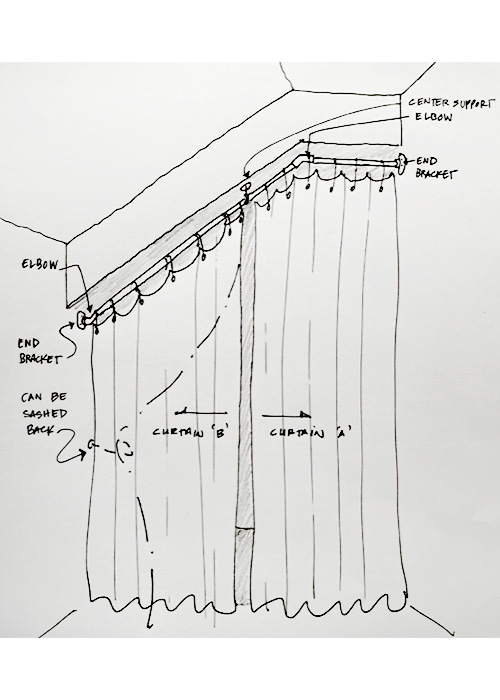 CENTER SUPPORT
ELBOW
END
BRACKET
ELBOW
END
BRACKET
CAN BE
SASHED
BACK
CURTAIN 'B'
CURTAIN 'A'